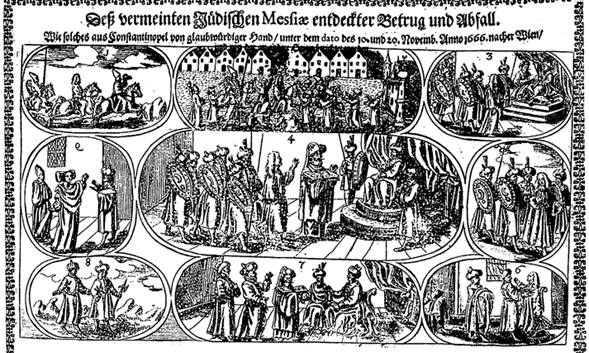 Deß vermeinten Jüdischen Messiæ entdeckter Betrug und Abfall.
Wie solches aus Constantinopel von glaubwürdiger Hand / unter dem dato des 10. und 20. Novemb. Anno 1666. nacher Wien /
3
4
7
8
6